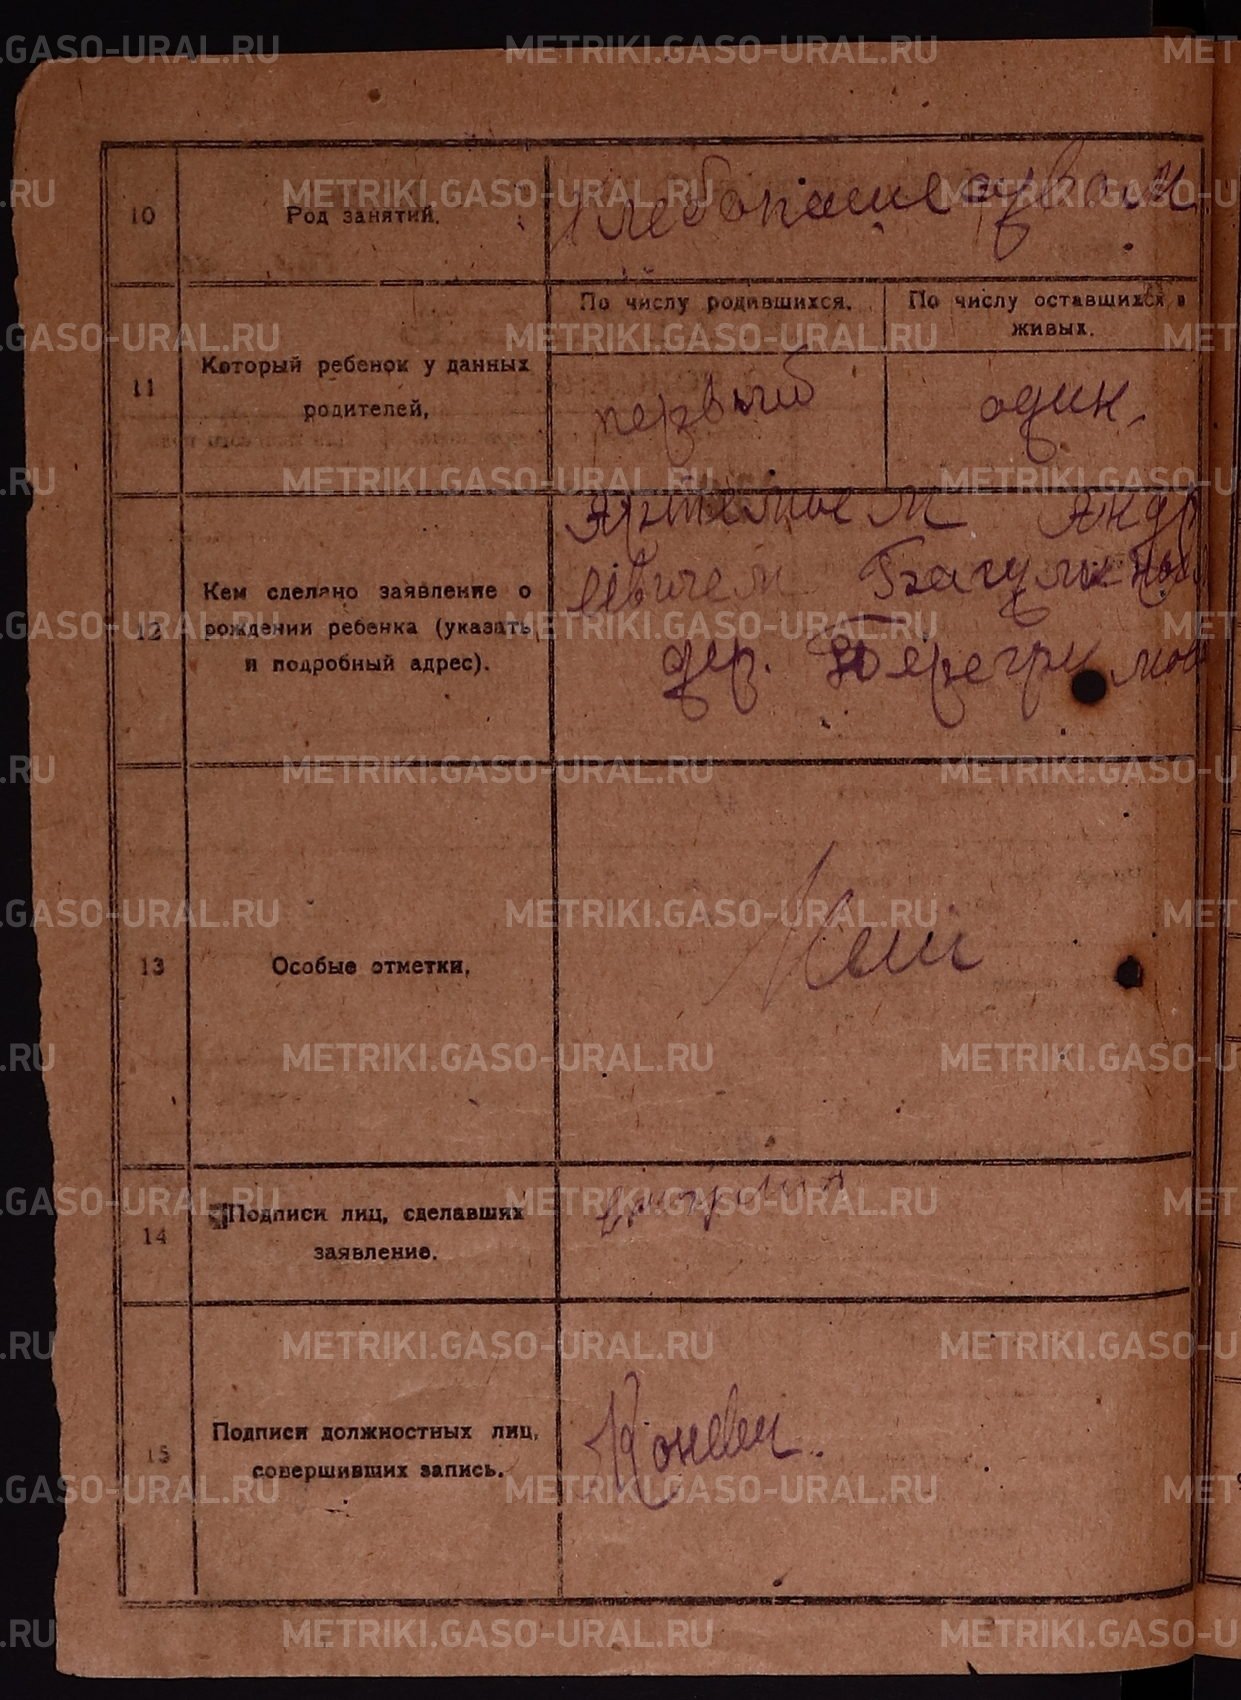 10
Род занятий.
Хлебопашеством
11
Который ребенок у данных
родителей,
По числу родившихся.
По числу оставшихся в
живых.
первый
один.
12
Кем сделано заявление о
рождении ребенка (указать
и подробный адрес).
Артемьем Андр
еевичем
дер.
13
Особые отметки,
14
Подписи лиц, сделавших
заявление.
15
Подписи должностных лиц,
совершивших запись.
METRIKI.GASO-URAL.RU